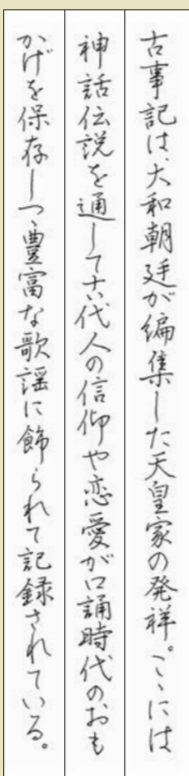 古事記は、大和朝廷が編集した天皇家の発祥。こゝには
神話伝説を通して古代人の信仰や恋愛が口誦時代のおも
かげを保存しつゝ豊富な歌謡に飾られて記録されている。